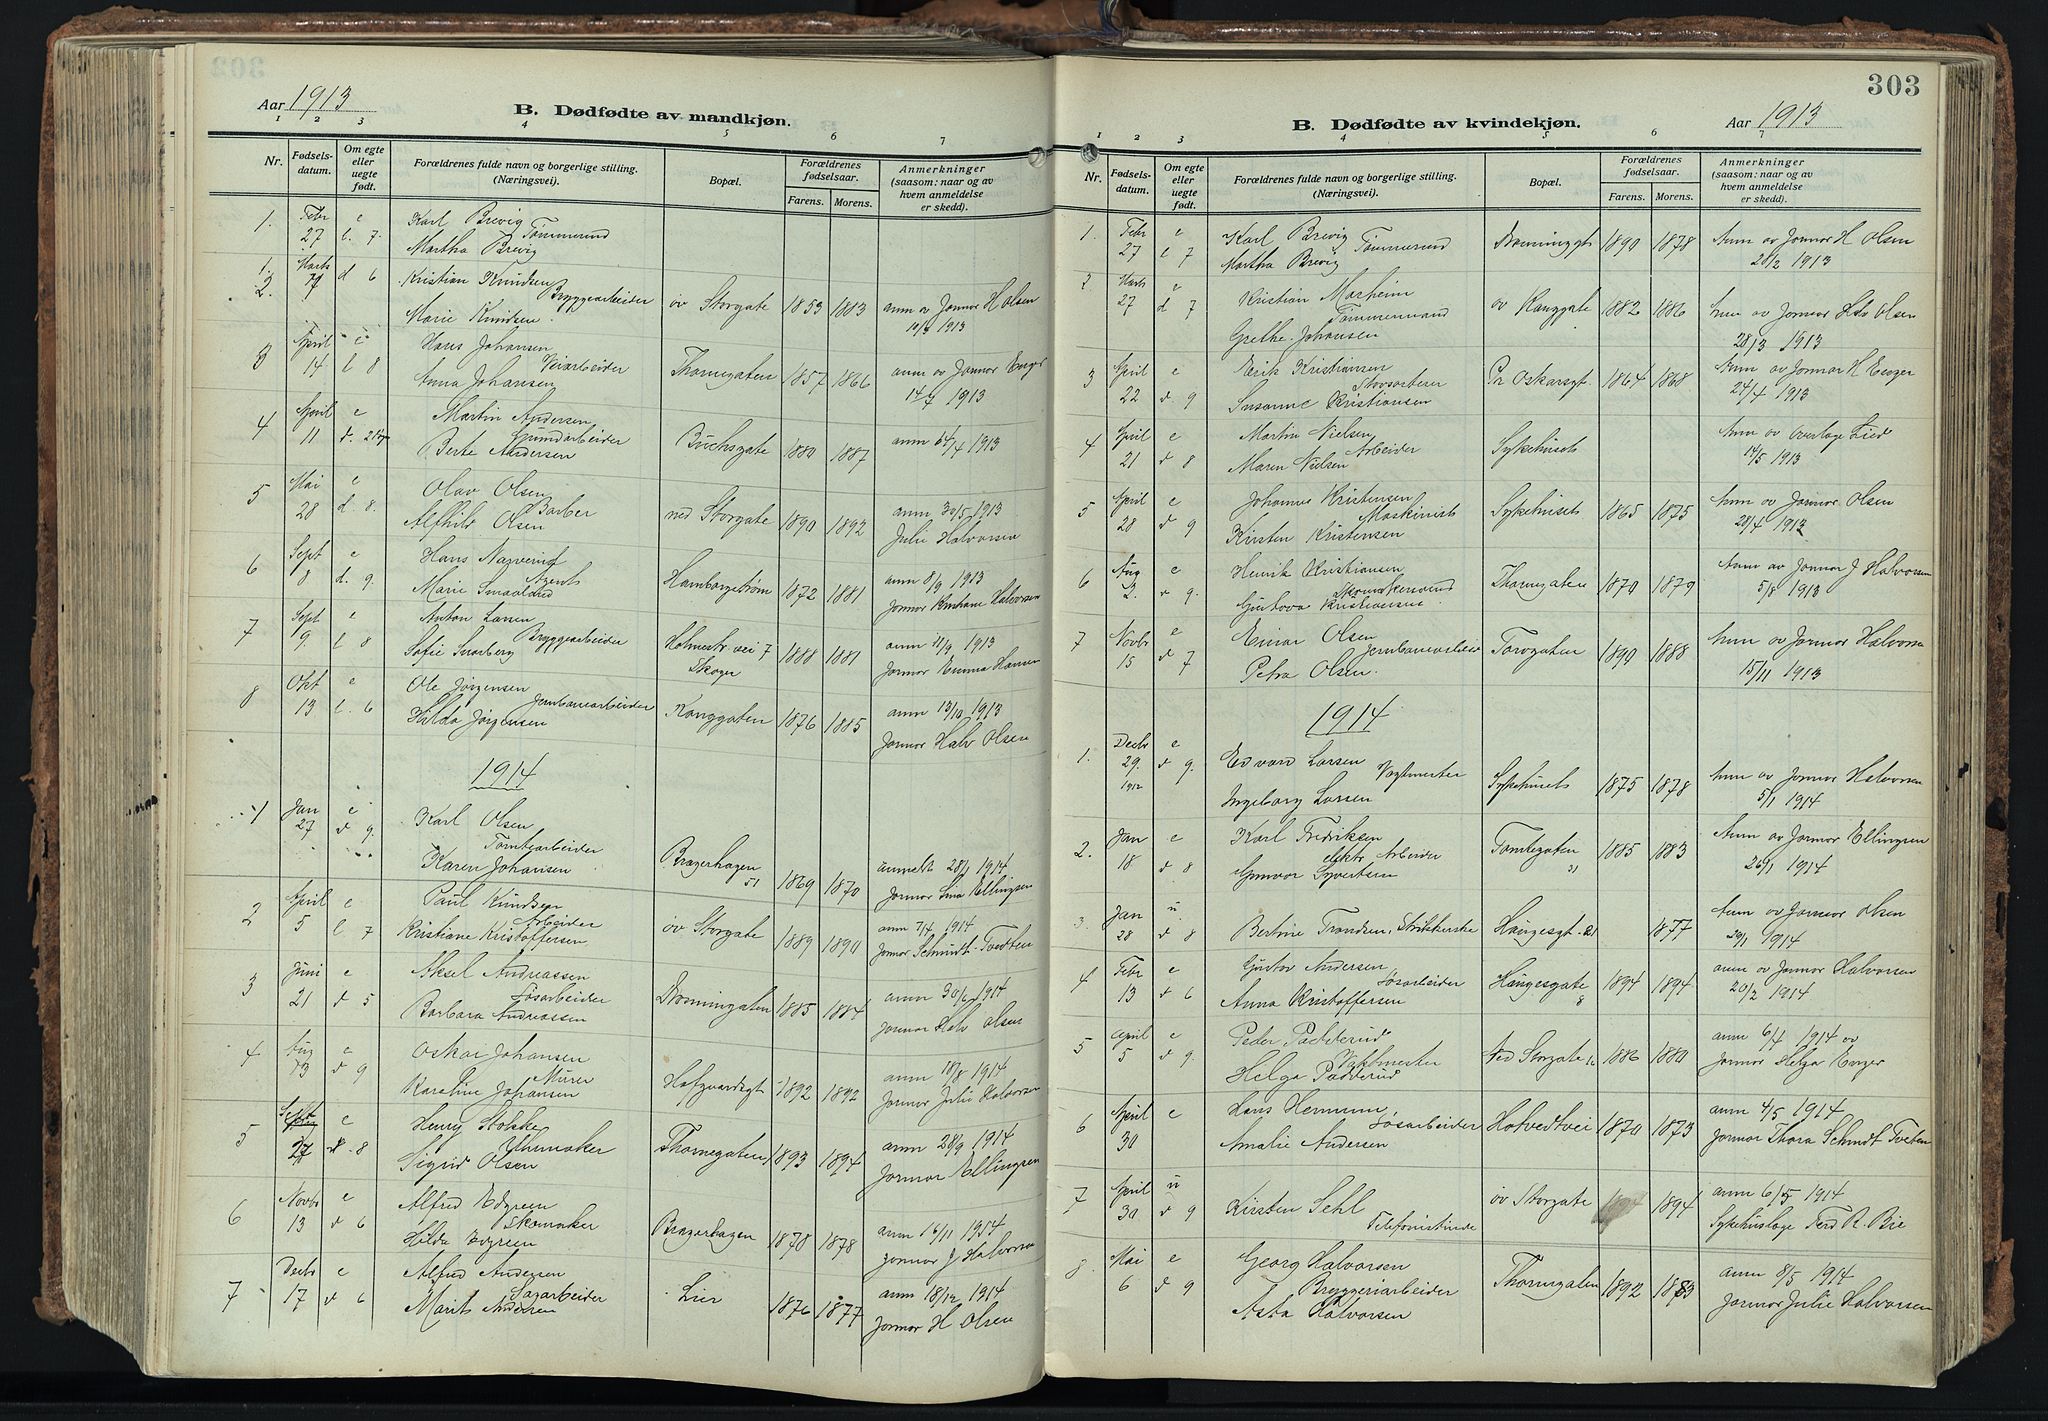 Aar 1913
B. Dødfødte av mandkjøn.
1 2 3 4 5 6 7
Nr. Fødsels-datum. Om egte eller uegte født. Forældrenes fulde navn og borgerlige stilling. (Næringsvei). Bopæl. Forældrenes fødselsaar. Farens. Morens. Anmerkninger (saasom: naar og av hvem anmeldelse er skedd).
1. Febr e Karl Brevig
27 l. 7.
Martha Brevig
2. Marts d 6 Kristian Knudsen
Bryggearbeider øv Storgate 1853 1883 anm av Jormor H Olsen
Marie Knudsen. 1913
April Hans Johansen
3 14 l 8 Veiarbeider Thornegaten 1857 1866 anm av Jormor
Anna Johansen 14/4 1913
April e Martin Andersen
4 11 d. Grundarbeider Buchsgate 1880 1887 anm 14/4 1913
Berte Andersen
Mai e Olav Olsen
5 28 d. 8. Barber ned Storgate 1890 1892 anm 30/5 1913
Alfhild Olsen Julie Halvorsen
Sept e Hans
6 8 d. 9. Agent 1872 1881 anm 8/9 1913
Marie Jormor Halvorsen
Sept e Anton Larsen
7 9. l 8 Bryggearbeider Holmestr vei 7 1888 1881 anm 11/9 1913
Sofie Skoger Jormor Emma Hansen
Okt e Ole Jørgensen
8 13 l. 6 Jernbanearbeider Konggaten 1876 1885 anm 13/10 1913
Hilda Jørgensen Jormor Halv Olsen
1914
1 Jan e Karl Olsen
27 d 9. Tomtearbeider Bragerhagen 1869 1870 anmeldt 28/1 1914
Karen Johansen 51 Jormor Lina Ellingsen
April e Paul Knudsen
2 5 l 7 Arbeider øv Storgate 1889 1890 anm 7/4 1914
Kristiane Kristoffersen Jormor Schmidt-Tvedten
Juni e Aksel Andreassen
3 21 d 5 Løsarbeider Dronninggaten 1885 1884 anm 30/6 1914
Barbara Andreassen Jormor Halv Olsen
Aug e Oskar Johansen
4 13 d 9 Murer 1892 1892 anm 18/8 1914
Karoline Johansen Jormor Julie Halvorsen
Sept e Henry
5 27 d. 8 Uhrmaker Thornegaten 1893 1894 anm 28/9 1914
Sigrid Olsen Jormor Ellingsen
Novb e Alfred
6 13 d 6 Skomaker Bragerhagen 1878 1878 anm 16/11 1914
Hilda Jormor J Halvorsen
Decbr e Alfred Andersen
7 17 d 6 Sagarbeider Lier 1876 1877 anm 18/12 1914
Marit Andersen Jormor H Olsen
303
B. Dødfødte av kvindekjøn.
Aar 1913
1 2 3 4 5 6 7
Nr. Fødsels-datum. Om egte eller uegte født. Forældrenes fulde navn og borgerlige stilling. (Næringsvei). Bopæl. Forældrenes fødselsaar. Farens. Morens. Anmerkninger (saasom: naar og av hvem anmeldelse er skedd).
1. Febr e Karl Brevig
27 l 7 Dronninggt 1890 1878 Anm av Jormor H Olsen
Martha Brevig 28/2 1913
2 Marts e Kristian
27 d 7 Tømmermand øv Konggate 1882 1886 Anm av Jormor Halv Olsen
Grethe Johansen 28/3 1913
3 April e Erik Kristiansen
22 d. 9 Pr Oskarsgt. 1864 1868 Anm av Jormor H Enger
Susanne Kristiansen 24/4 1913
4 April e Martin Nielsen
21 d 8 Arbeider Sykehuset Anm av Overlæge
Maren Nielsen 14/5 1913
5 April e Johannes Kristensen
28 d 9 Maskinist Sykehuset 1865 1875 Anm av Jormor Olsen
Kirsten Kristensen 28/4 1913
6 Aug e Henrik Kristiansen
2. d 9. Thornegaten 1870 1879 Anm av Jormor J Halvorsen
Gustava Kristiansen 5/8 1913
7 Novb e Einar Olsen
15 d 7 Jernbanearbeid Torvgaten 1890 1888 Anm av Jormor Halvorsen
Petra Olsen. 15/11 1913
1914
1. Decbr e Edvard Larsen
29. d 9. Vagtmester Sykehuset 1875 1878 Anm av Jormor Halvorsen
1912 Ingeborg Larsen 5/1 1914
2. Jan e Karl Fredriksen
18 d 8 elektr Arbeider Tomtegaten 1885 1883 Anm av Jormor Ellingsen
Gunvor Syvertsen 31 26/1 1914
3. Jan u. Bertine Trondsen, Strikkerske Haugesgt. 21 1877 Anm av Jormor Olsen
28 d 8 1914
4 Febr e Gustav Andersen
13 d 6 Løsarbeider Haugesgate 1894 1894 anm av Jormor Halvorsen
Anna Kristoffersen 8 20/2 1914
5 April e Peder Padderud
5 d 9. Vaktmester Ned Storgate 1886 1880 anm 6/4 1914 av
Helga Padderud Jormor Helga Enger
6 April e Hans Hermann,
30 Løsarbeider Hotvedtvei 1870 1873 anm 4/5 1914
Amalie Andersen Jormor Thora Schmidt Tveten
7 April u Kirsten Sehl øv Storgate 1894 anm 6/5 1914
30 d 9 Telefonistinde Sykehuslæge Ferd R. Bie
8 Mai e Georg Halvorsen
6 d 9 Bryggeriarbeider Thornegaten 1892 anm 8/5 1914
Asta Halvorsen Jormor Julie Halvorsen